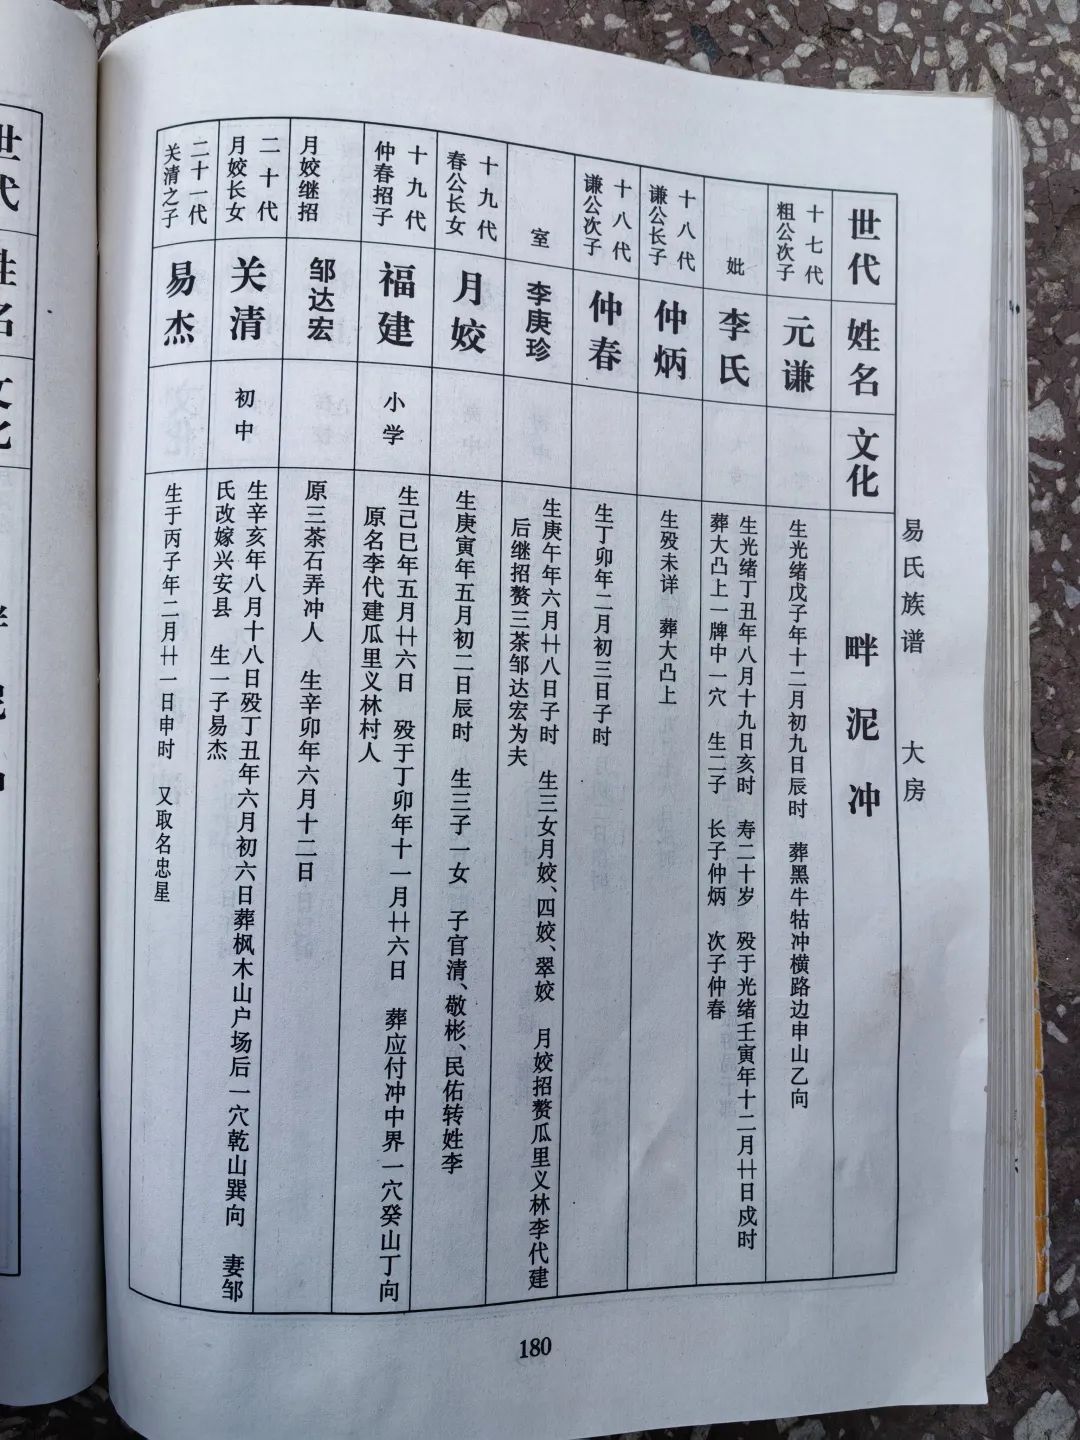 易氏族谱 大房
世代
姓名
文化
畔泥冲
十七代
粗公次子
元谦
生光绪戊子年十二月初九日辰时 葬黑牛牯冲横路边申山乙向
妣
李氏
生光绪丁丑年八月十九日亥时 寿二十岁 殁于光绪壬寅年十二月廿日戌时
葬大凸上一牌中一穴 生二子 长子仲炳 次子仲春
十八代
谦公长子
仲炳
生殁未详 葬大凸上
十八代
谦公次子
仲春
生丁卯年二月初三日子时
室
李庚珍
生庚午年六月廿八日子时 生三女月姣、四姣、翠姣 月姣招赘瓜里义林李代建
后继招赘三茶邹达宏为夫
十九代
春公长女
月姣
生庚寅年五月初二日辰时 生三子一女 子官清、敬彬、民佑转姓李
十九代
仲春招子
福建
小学
生己巳年五月廿六日 殁于丁卯年十一月廿六日 葬应付冲中界一穴癸山丁向
原名李代建瓜里义林村人
月姣继招
邹达宏
原三茶石弄冲人 生辛卯年六月十二日
二十代
月姣长女
关清
初中
生辛亥年八月十八日殁丁丑年六月初六日葬枫木山户场后一穴乾山巽向 妻邹
氏改嫁兴安县 生一子易杰
二十一代
关清之子
易杰
生于丙子年二月廿一日申时 又取名忠星
180
世代
姓名
文化